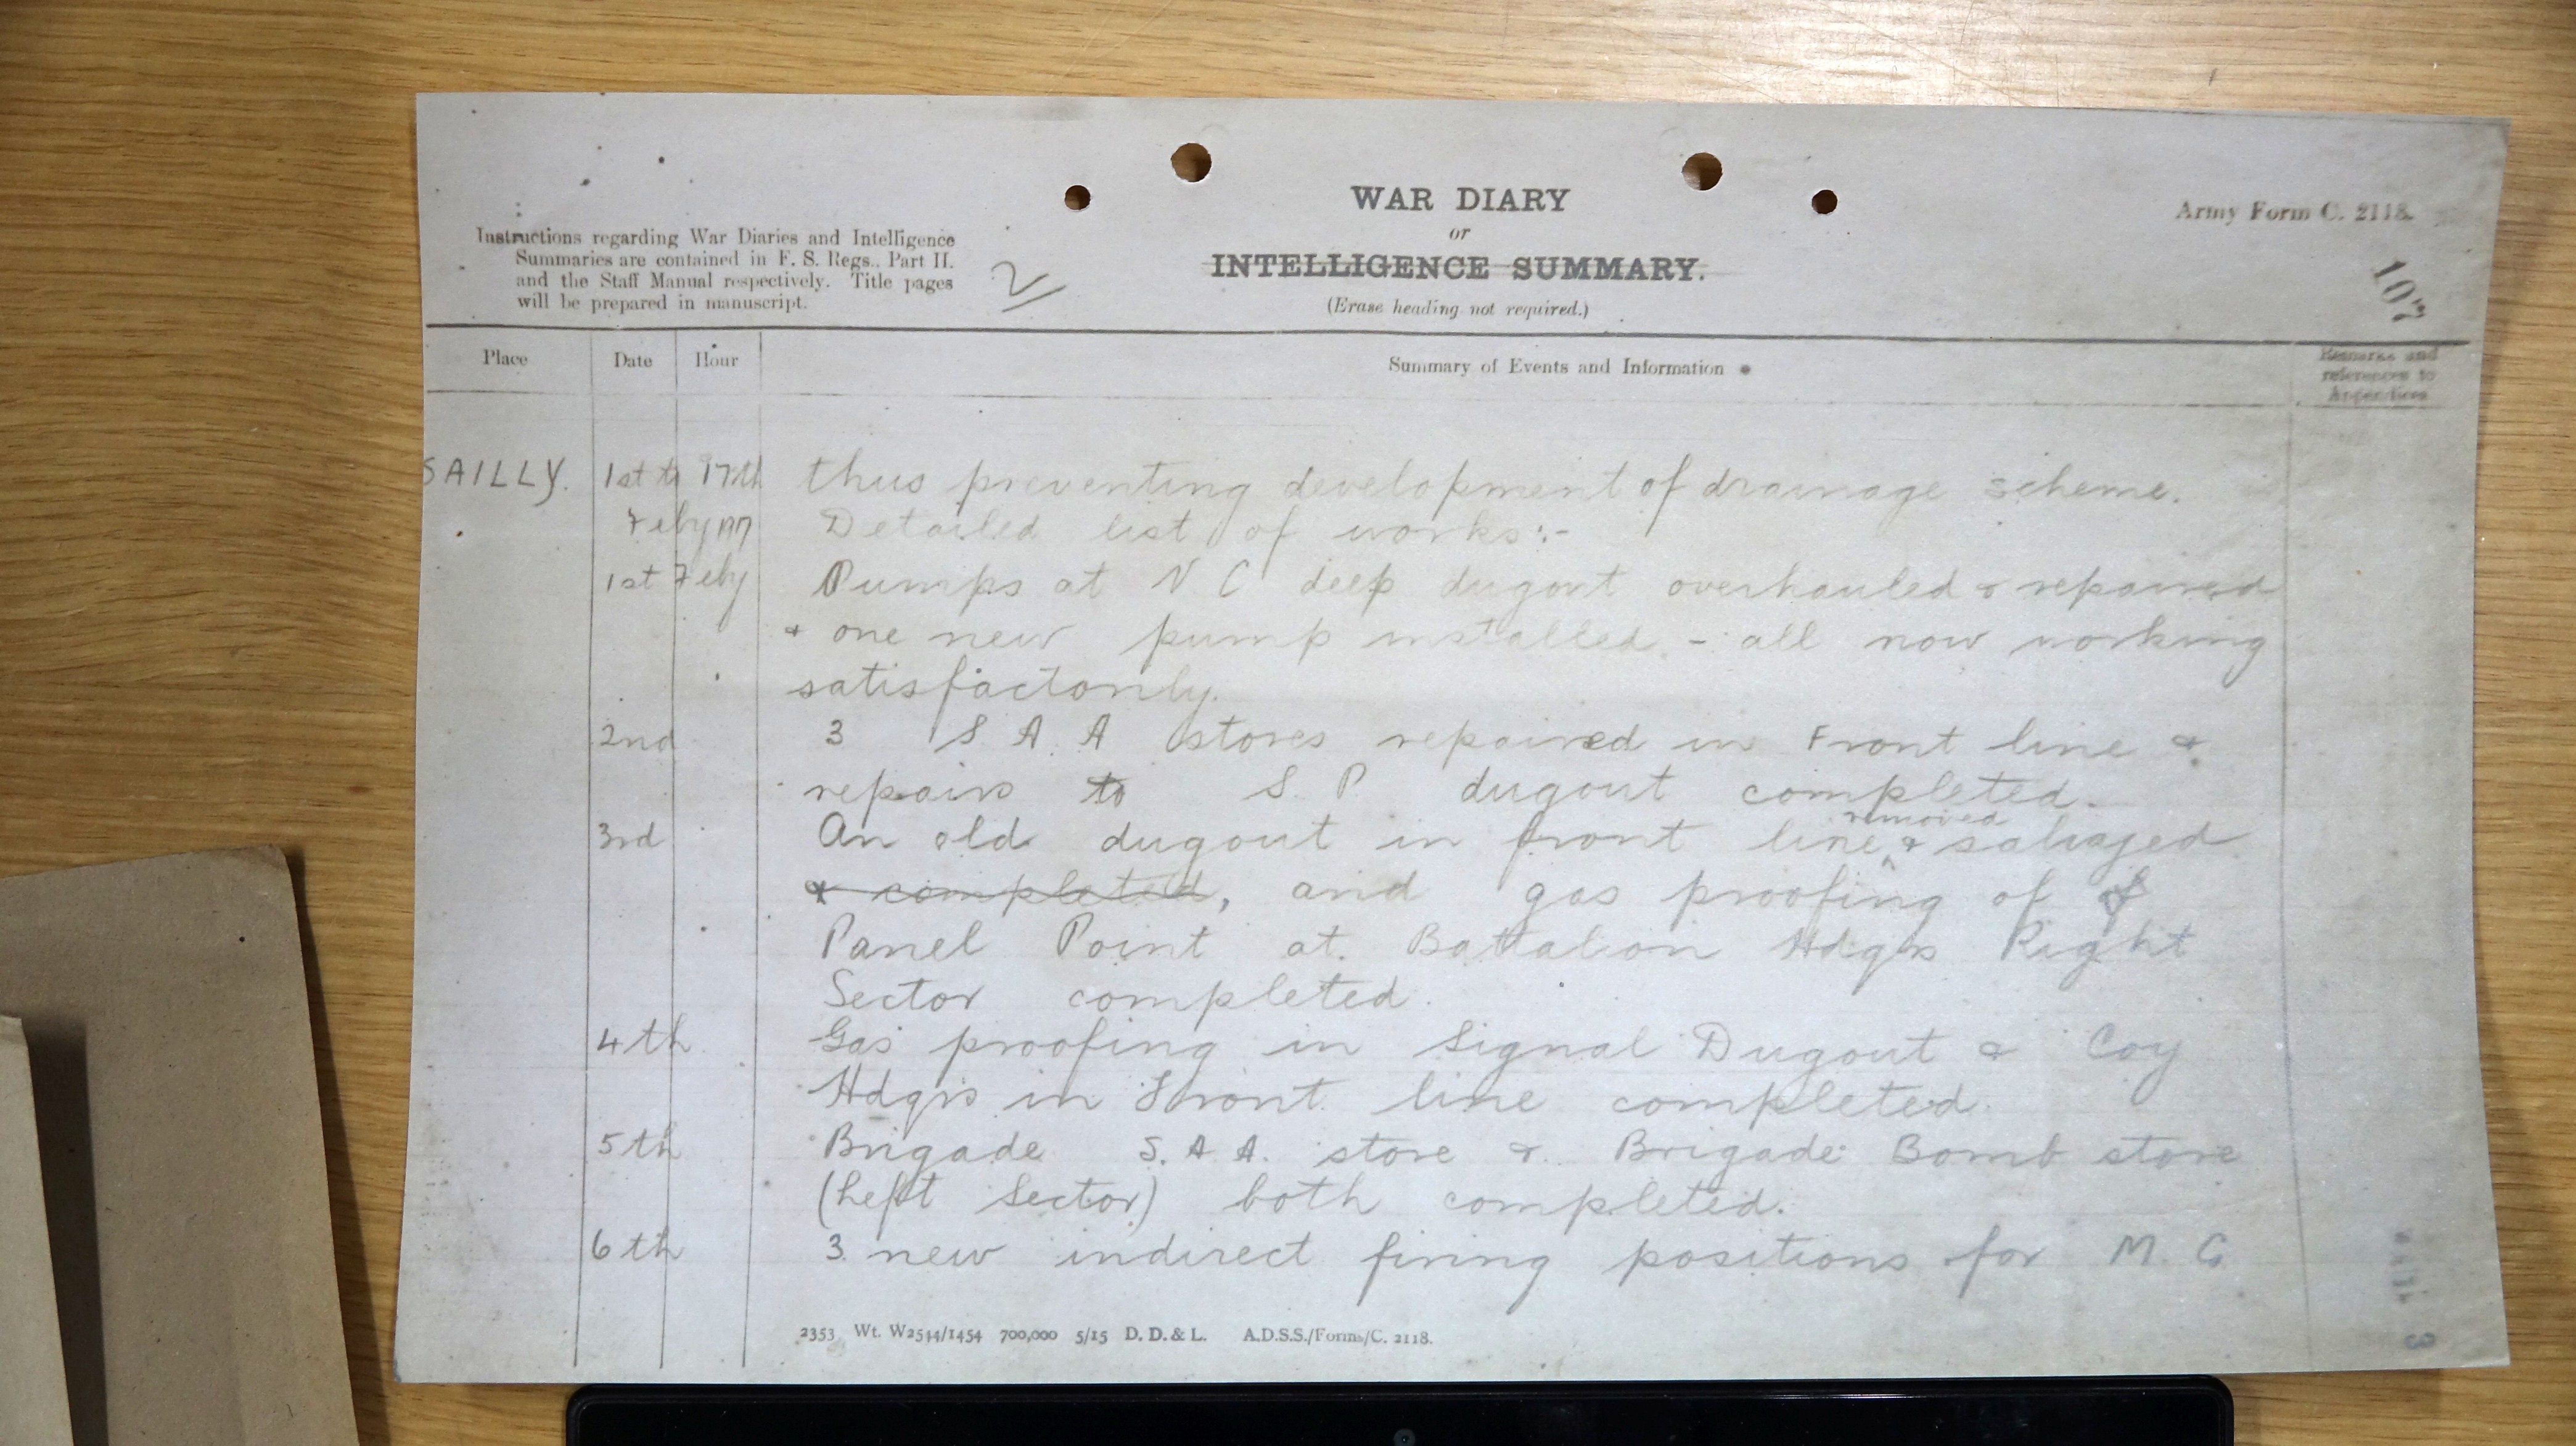 WAR DIARY
or
INTELLIGENCE SUMMARY.
(Erase heading not required.)
Army Form C. 2118.
Instructions regarding War Diaries and Intelligence
Summaries are contained in F. S. Regs., Part II.
and the Staff Manual respectively. Title pages
will be prepared in manuscript.
2
107
Place Date Hour Summary of Events and Information
Remarks and
references to
Appendices
SAILLY. 1st to 17th thus preventing development of drainage scheme.
Feby 1917 Detailed list of works:-
1st Feby Pumps at N C deep dugout overhauled & repaired
& one new pump installed - all now working
satisfactorily.
2nd 3 S A A stores repaired in Front line &
repairs to S. P. dugout completed.
3rd An old dugout in front line removed & salvaged
& completed, and gas proofing of of
Panel Point at Battalion Hdqrs Right
Sector completed.
4th Gas proofing in Signal Dugout & Coy
Hdqrs in Front line completed.
5th Brigade S. A. A. store & Brigade Bomb store
(Left Sector) both completed.
6th 3 new indirect firing positions for M. G
2353 Wt. W2544/1454 700,000 5/15 D. D. & L. A.D.S.S./Forms/C. 2118.